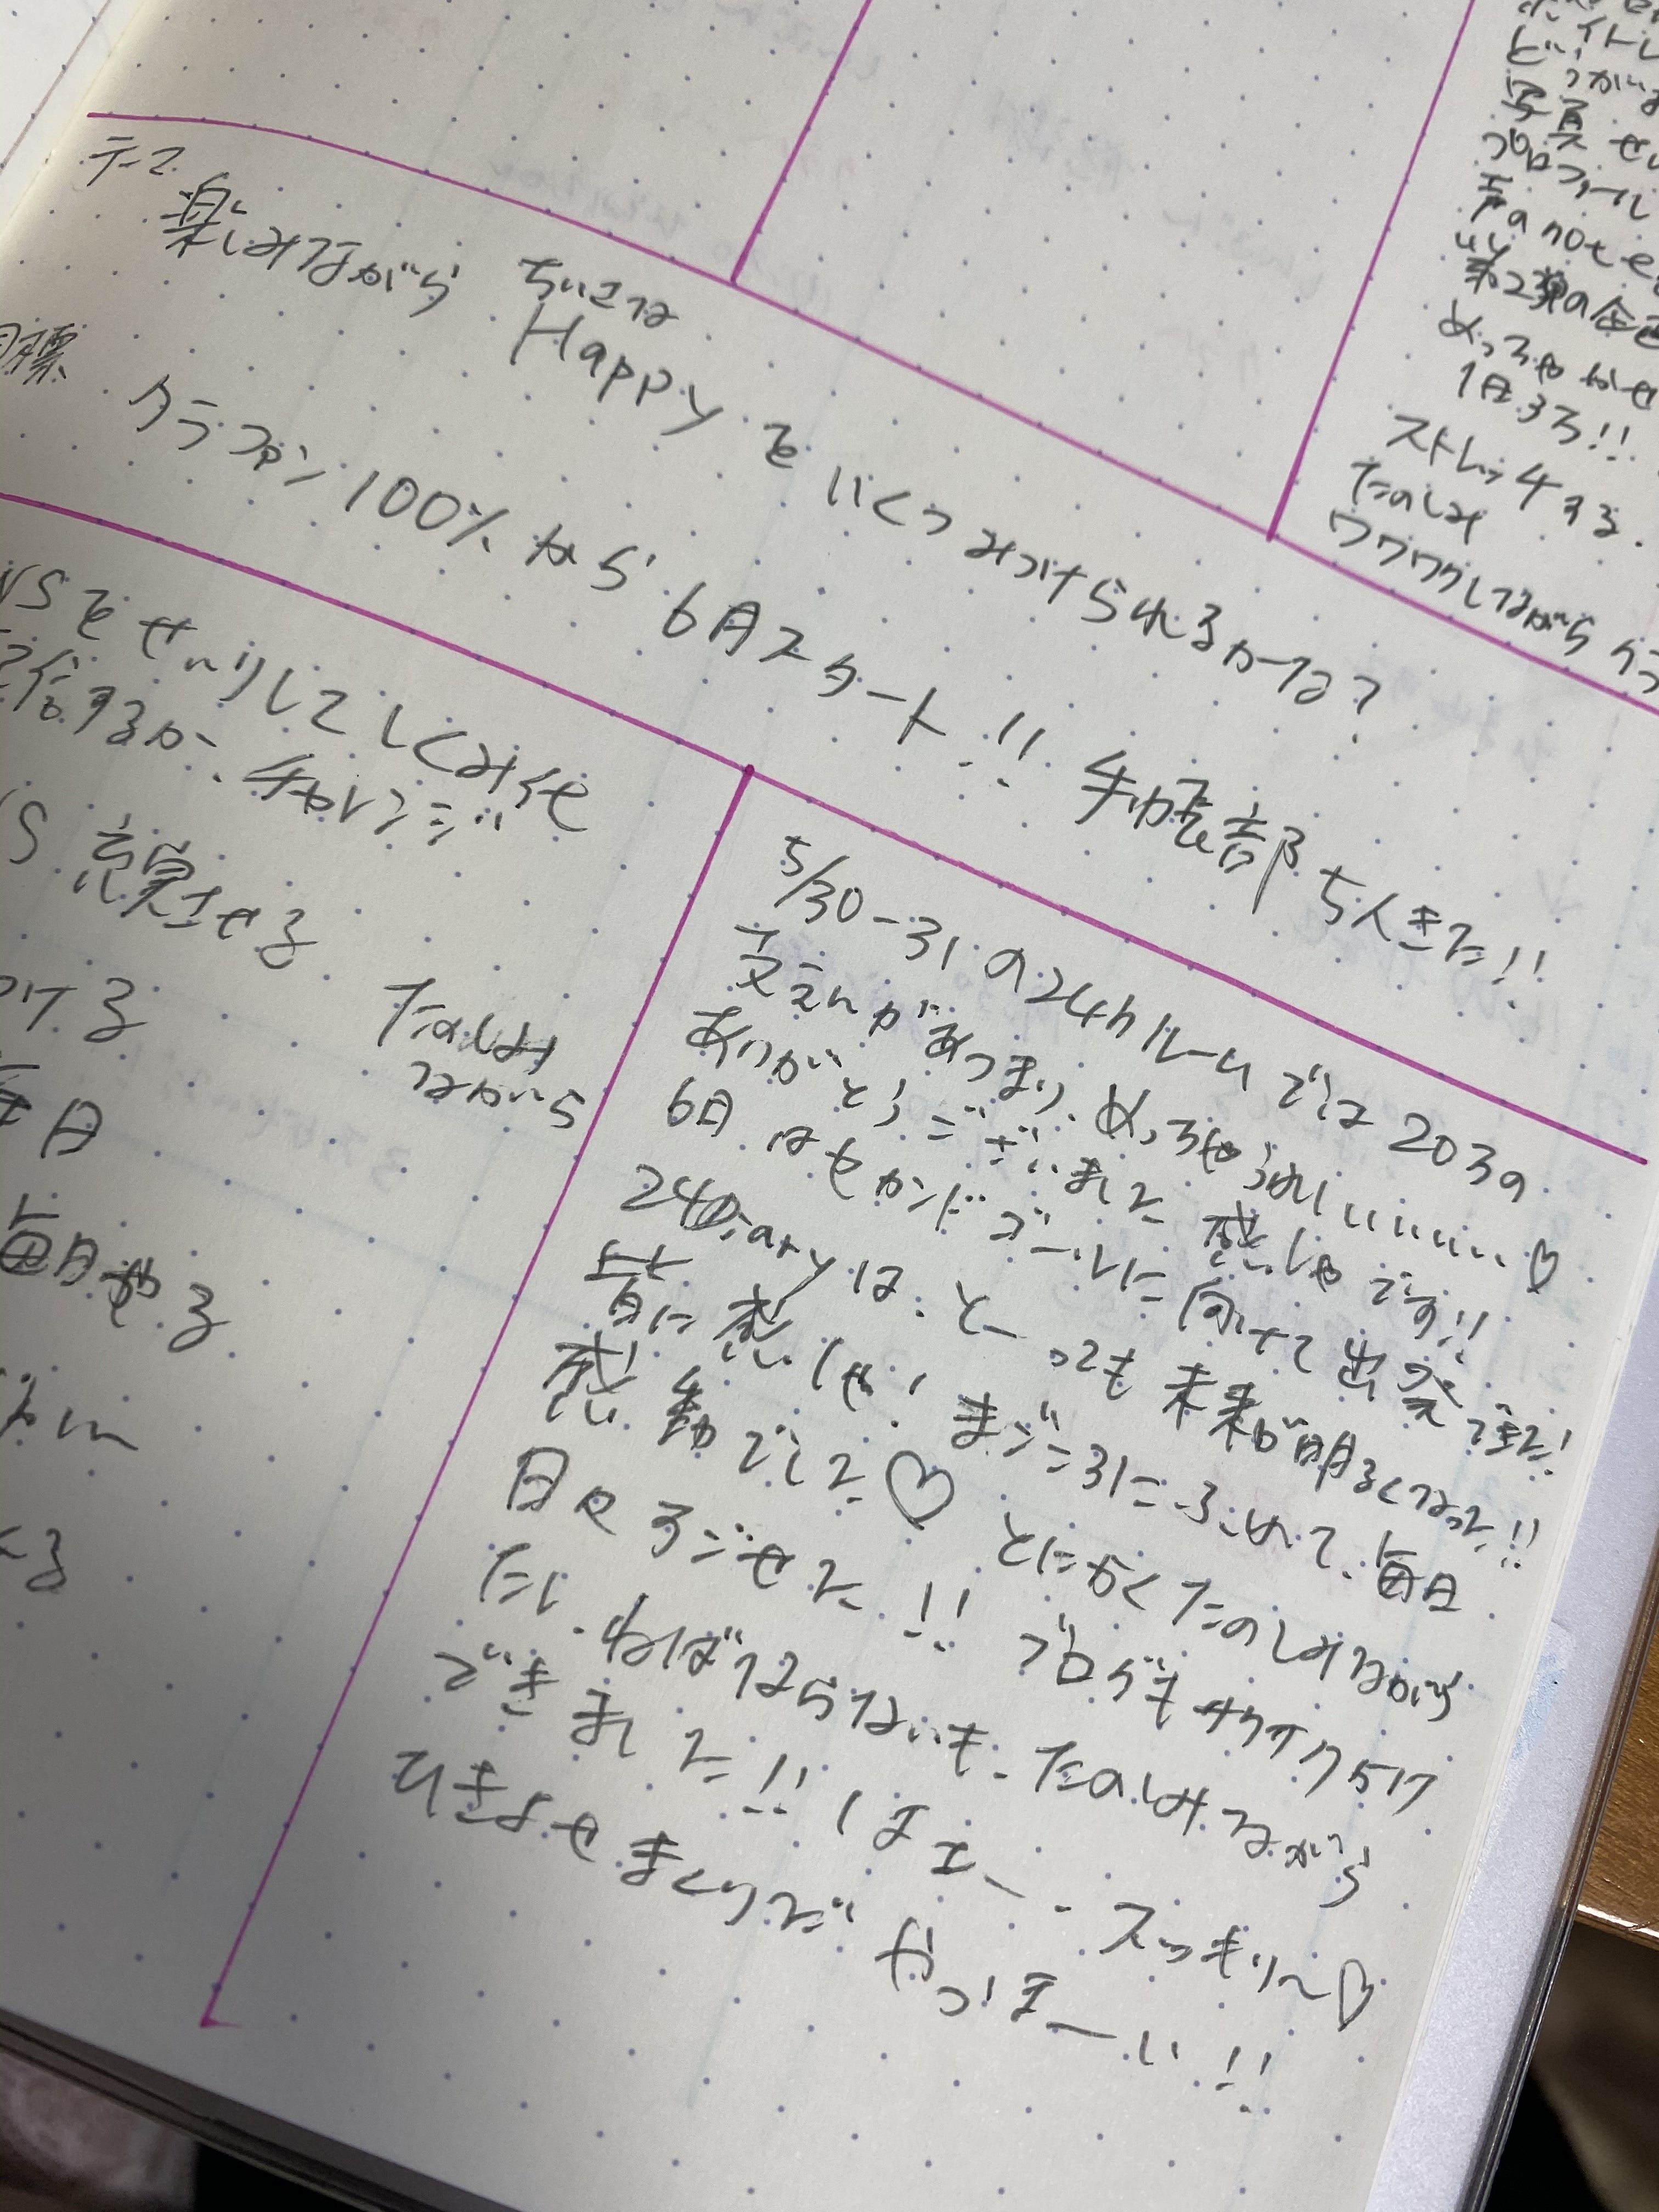 テーマ
楽しみながら ちいさな
Happy を いくつ みつけられるかな?
目標 クラファン 100% から 6月スタート!! 手帳部 5人きた!!
せいりして しくみ化
するか、チャレンジ
させる
つける
たのしみ
ながら
毎日
毎日やる
5/30-31の24hルームでは203の
支えんがあつまり、めっちゃうれしいいいい、♡
ありがとうございました 感しゃです!!
6月はセカンドゴールに向けて出発です!
24Diaryは、とーっても未来が明るくなった!!
皆に感しゃ! まじ 3に ふくめて、毎日
感動でした♡ とにかくたのしみながら
日々 すごせた!! ブログもサクサク
たし、ねばならないも、たのしみながら
できました!! はエー、スッキリ〜♡
ひきよせまくりだ やっほーい!!
写真
プロフィール
声のnote
第2弾の企画
めっちゃ
1日 する!!
ストレッチする.
たのしみ
ワクワクしながら